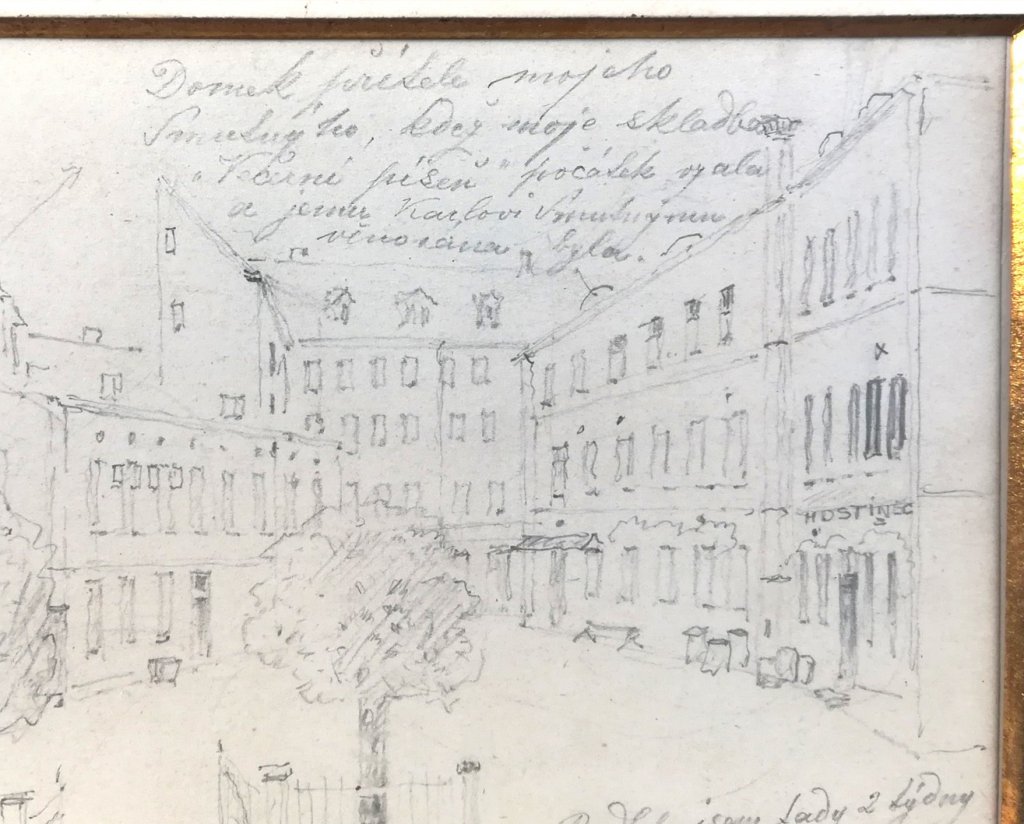 Domek přítele mojeho
Smutnýho, když moje skladba
"Večerní píseň" počátek vzala
a jemu Karlovi Smutnýmu
věnována byla.
x
HOSTINEC
jsem tady 2 týdny